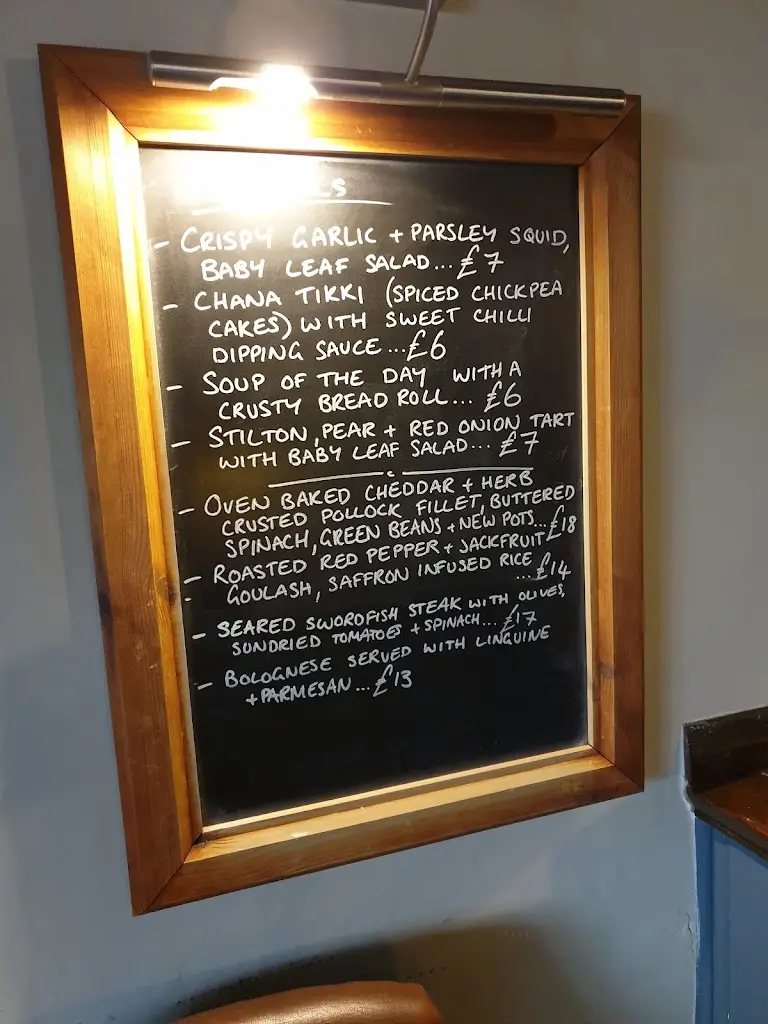 - CRISPY GARLIC + PARSLEY SQUID,
BABY LEAF SALAD... £7
- CHANA TIKKI (SPICED CHICKPEA
CAKES) WITH SWEET CHILLI
DIPPING SAUCE ... £6
- SOUP OF THE DAY WITH A
CRUSTY BREAD ROLL... £6
- STILTON, PEAR + RED ONION TART
WITH BABY LEAF SALAD... £7
- OVEN BAKED CHEDDAR + HERB
CRUSTED POLLOCK FILLET, BUTTERED
SPINACH, GREEN BEANS + NEW POTS... £18
- ROASTED RED PEPPER + JACKFRUIT
GOULASH, SAFFRON INFUSED RICE
... £14
- SEARED SWORDFISH STEAK WITH OLIVES,
SUNDRIED TOMATOES + SPINACH... £17
- BOLOGNESE SERVED WITH LINGUINE
+ PARMESAN ... £13